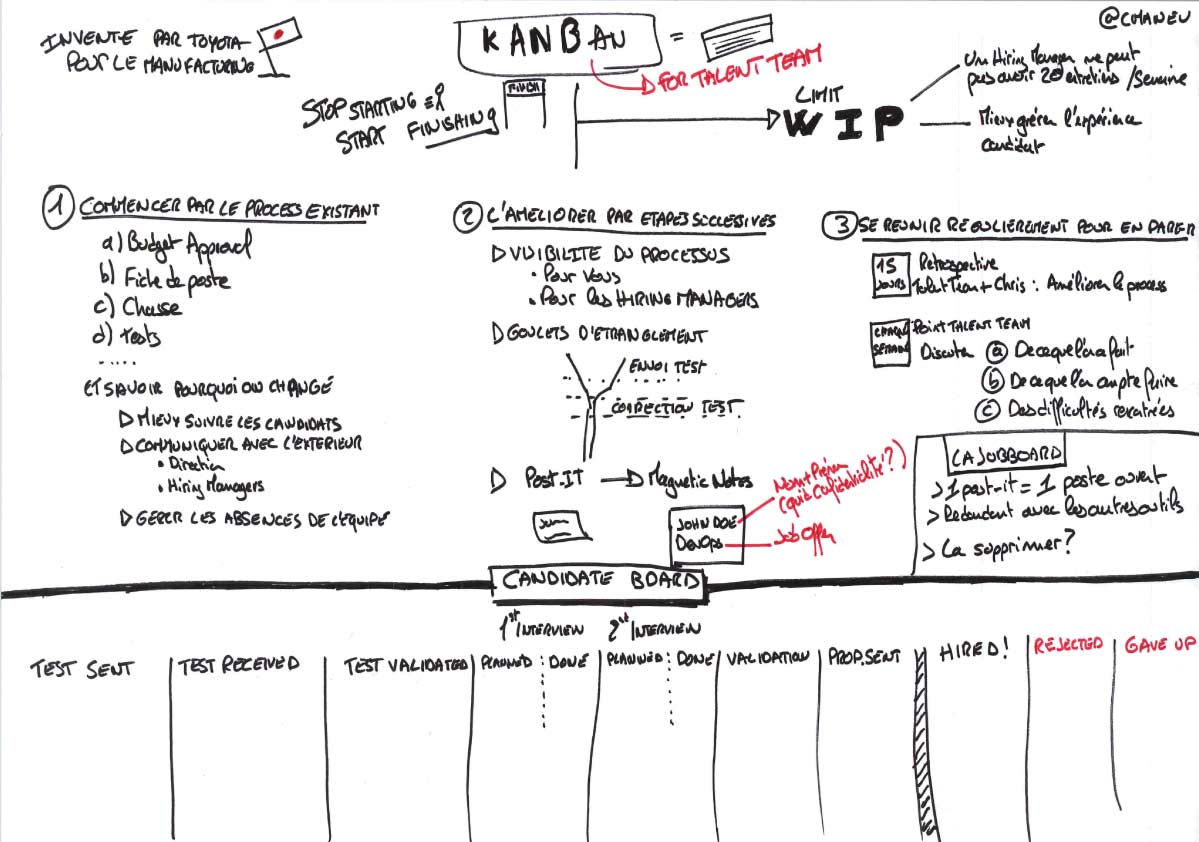 @CMANEU
INVENTE PAR TOYOTA
POUR LE MANUFACTURING
KANBAN
=
FOR TALENT TEAM
STOP STARTING &
START FINISHING
FINISH
LIMIT
WIP
Un Hiring Manager ne peut
pas avoir 20 entretiens / Semaine
Mieux gérer l'expérience
candidat
1 COMMENCER PAR LE PROCESS EXISTANT
a) Budget Approval
b) Fiche de poste
c) Chasse
d) Tests
.....
ET SAVOIR POURQUOI ON CHANGE
MIEUX SUIVRE LES CANDIDATS
COMMUNIQUER AVEC L'EXTERIEUR
• Direction
• Hiring Managers
GERER LES ABSENCES DE L'EQUIPE
2 L'AMELIORER PAR ETAPES SUCCESSIVES
VISIBILITE DU PROCESSUS
• POUR VOUS
• POUR LES HIRING MANAGERS
GOULETS D'ETRANGLEMENT
ENVOI TEST
CORRECTION TEST
POST-IT → Magnetic Notes
JOHN DOE
DevOps
Nom + Prénom
(quid Confidentialité ?)
Job Offer
3 SE REUNIR REGULIEREMENT POUR EN PARLER
15 JOURS
Retrospective
Talent Team + Chris : Améliorer le process
CHAQUE SEMAINE
POINT TALENT TEAM
Discuter a De ce que l'on a fait
b De ce que l'on compte faire
c Des difficultés rencontrées
LA JOBBOARD
> 1 post-it = 1 poste ouvert
> Redondant avec les autres outils
> La supprimer ?
CANDIDATE BOARD
1st INTERVIEW 2nd INTERVIEW
TEST SENT TEST RECEIVED TEST VALIDATED PLANNED DONE PLANNED DONE VALIDATION PROP. SENT HIRED! REJECTED GAVE UP